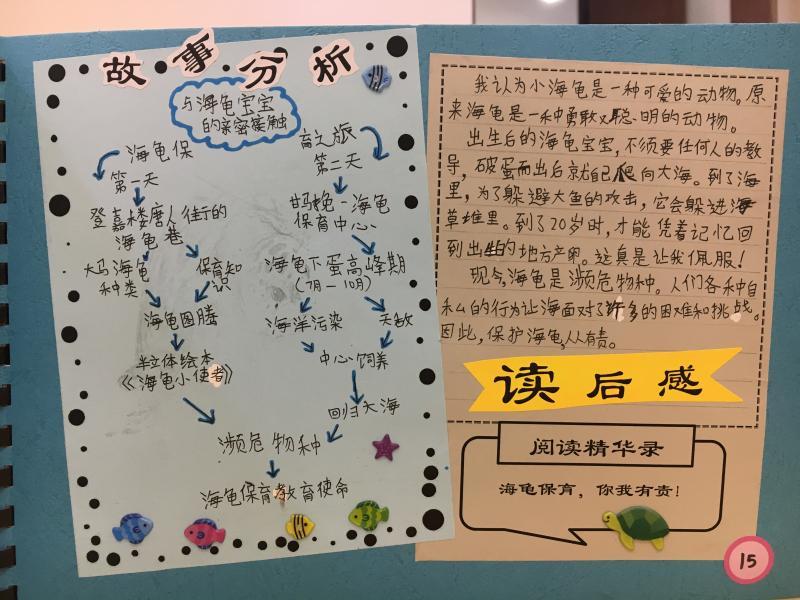 故事分析
与海龟宝宝
的亲密接触
海龟保
育之旅
第一天
第二天
登嘉楼唐人往行的
海龟巷
大马海龟
种类
保育知
识
海龟图腾
半立体绘本
《海龟小使者》
海龟
保育中心
海龟下蛋高峰期
(7月-10月)
海洋污染
天敌
中心饲养
回归大海
濒危物种
海龟保育教育使命
我认为小海龟是一种可爱的动物。原
来海龟是一种勇敢又聪明的动物。
出生后的海龟宝宝,不须要任何人的教
导,破蛋而出后就自己爬向大海。到了海
里,为了躲避大鱼的攻击,它会躲进海
草堆里。到了20岁时,才能凭着记忆回
到出生的地方产卵。这真是让我佩服!
现今海龟是濒危物种。人们各种自
私的行为让海面对了许多的困难和挑战。
因此,保护海龟,人人有责。
读后感
阅读精华录
海龟保育,你我有责!
15